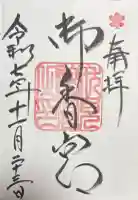 奉拝
御香宮
令和七年十一月二十三日